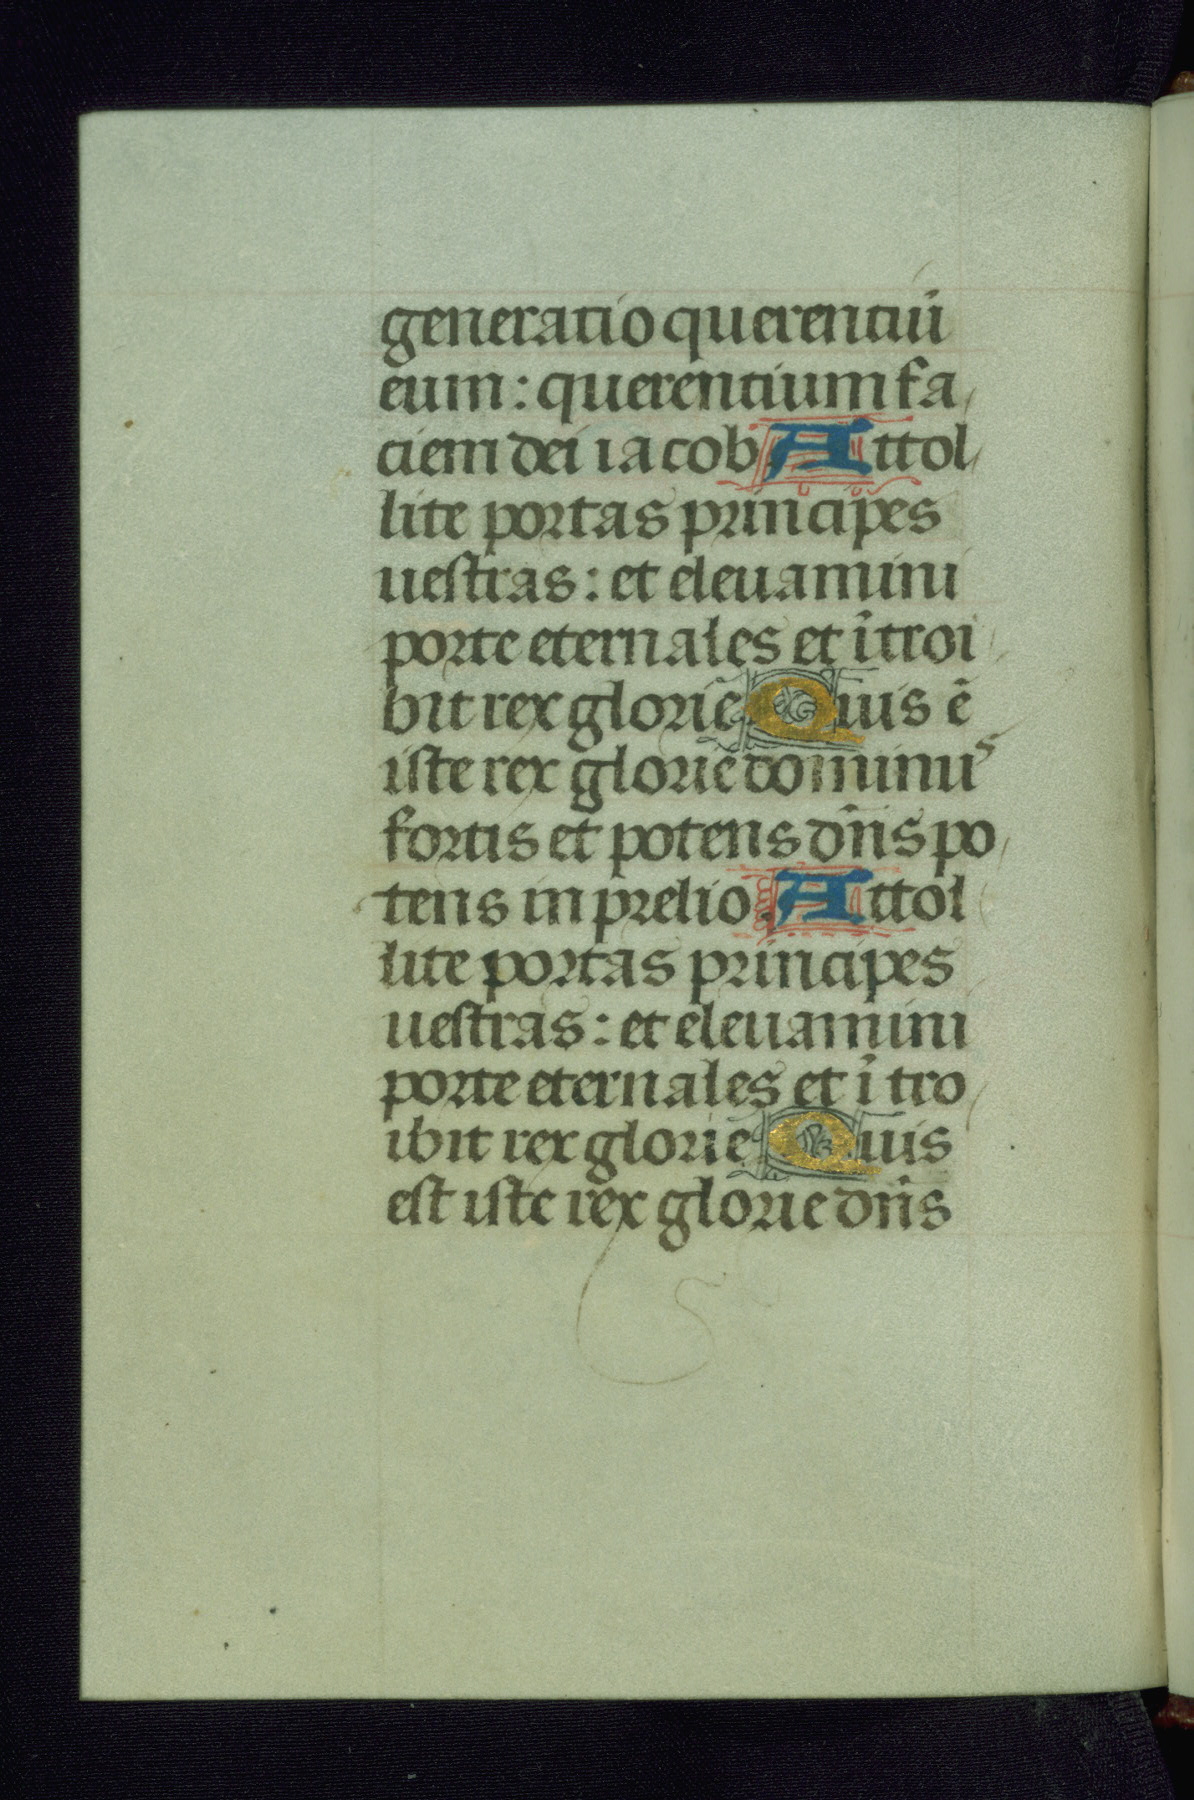 generatio querentiū
eum : querentium fa
ciem dei iacob Attol
lite portas principes
uestras : et eleuamini
porte eternales et ītroi
bit rex glorie Quis ē
iste rex glorie dominus
fortis et potens dn̄s po
tens in prelio Attol
lite portas principes
uestras : et eleuamini
porte eternales et ītro
ibit rex glorie Quis
est iste rex glorie dn̄s